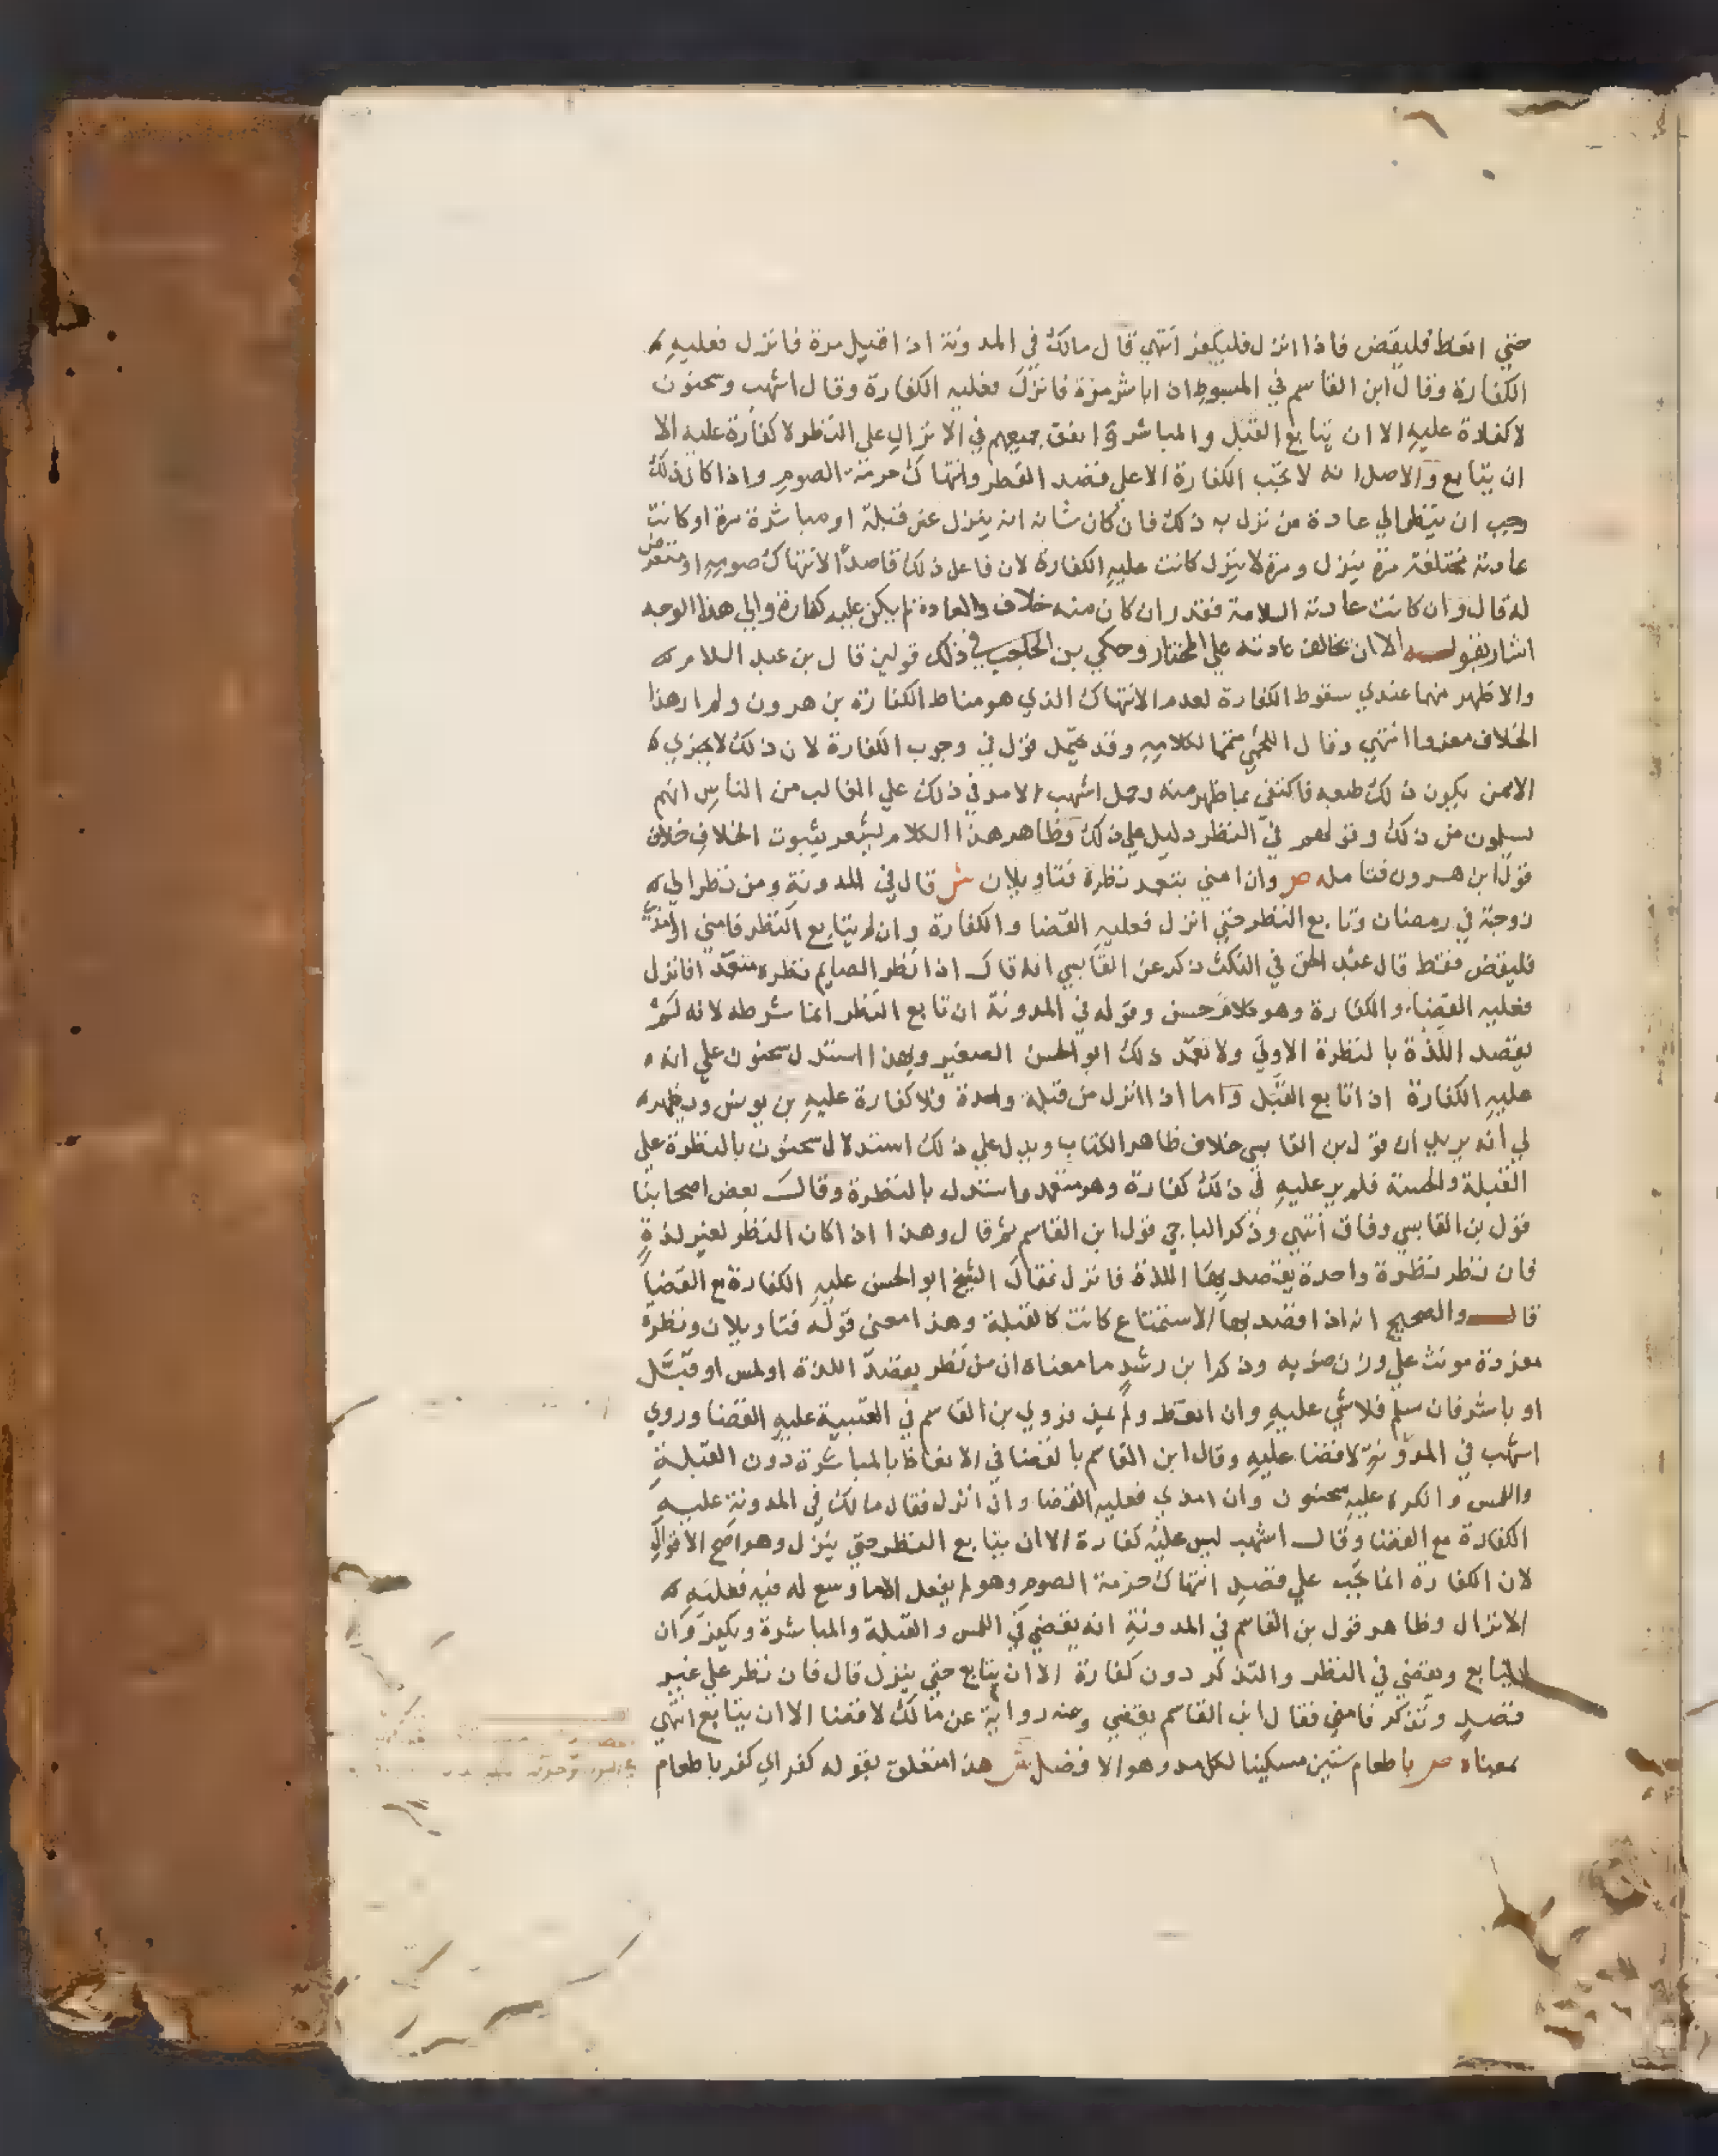 حتي انعظ فليقض فاذا انزل فليكفر انتهي قال مالك في المدونة اذا قبل مرة فانزل فعليه
الكفارة وقال ابن القاسم في المبسوط ان باشر مرة فانزل فعليه الكفارة وقال اشهب وسحنون
لا كفارة عليه الا ان يتابع القبل والمباشرة واتفق جميعهم في الانزال علي النظر لا كفارة عليه الا
ان يتابع والاصل انه لا تجب الكفارة الا علي قصد الفطر وانتهاك حرمة الصوم واذا كان ذلك
وجب ان ينظر الي عادة من نزل به ذلك فان كان شانه انه ينزل عن قبلة او مباشرة مرة او كانت
عادته مختلفة مرة ينزل ومرة لا ينزل كانت عليه الكفارة لان فاعل ذلك قاصدا لانتهاك صومه او متعرض
له قال وان كانت عادته السلامة فقدر ان كان منه خلاف العادة لم يكن عليه كفارة والي هذا الوجه
اشار بقوله الا ان تخالف عادته علي المختار وحكي بن الحاجب في ذلك قولين قال بن عبد السلام
والاظهر منهما عندي سقوط الكفارة لعدم الانتهاك الذي هو مناط الكفارة بن هرون ولم ار هذا
الخلاف معزوا انتهي وقال اللخمي متمما لكلامه وقد يحمل قول في وجوب الكفارة لان ذلك لا يجزي
الا ممن يكون ذلك طبعه فاكتفي بما ظهر منه وحمل اشهب الامر في ذلك علي الغالب من الناس انهم
يسلمون من ذلك وقولهم في النظر دليل علي ذلك وظاهر هذا الكلام يشعر بثبوت الخلاف خلاف
قول ابن هرون فتامله ص وان امني بتعمد نظرة فتاويلان ش قال في المدونة ومن نظر الي
زوجته في رمضان وتابع النظر حتي انزل فعليه القضا والكفارة وان لم يتابع النظر فامني او امذي
فليقض فقط قال عبد الحق في النكث ذكر عن القابسي انه قال اذا نظر الصايم نظرة متعمدا فانزل
فعليه القضاء والكفارة وهو كلام حسن وقوله في المدونة ان تابع النظر انما شرطه لانه لم
يقصد اللذة بالنظرة الاولي ولا تعمد ذلك ابو الحسن الصغير وبهذا استدل سحنون علي انه
عليه الكفارة اذا تابع القبل واما اذا انزل من قبلة واحدة فلا كفارة عليه بن يونس ويظهر
لي انه يريد ان قول بن القابسي خلاف ظاهر الكتاب ويدل علي ذلك استدلال سحنون بالنظرة علي
القبلة والجسة فلم ير عليه في ذلك كفارة وهو متعمد واستدل بالنظرة وقال بعض اصحابنا
قول بن القابسي وفاق انتهي وذكر الباجي قول ابن القاسم ثم قال وهذا اذا كان النظر لغير لذة
فان نظر نظرة واحدة يقصد بها اللذة فانزل فقال الشيخ ابو الحسن عليه الكفارة مع القضا
قال والصحيح انه اذا قصد بها الاستمتاع كانت كالقبلة وهذا معني قوله فتاويلان ونظرة
مفردة مونث علي وزن ضربه وذكر ابن رشد ما معناه ان من نظر بقصد اللذة او لمس او قبّل
او باشر فان سلم فلا شي عليه وان انعظ ولم يمذ فروي بن القاسم في العتبية عليه القضا وروي
اشهب في المدونة لا قضا عليه وقال ابن القاسم بالقضا في الانعاظ بالمباشرة دون القبلة
واللمس وانكره عليه سحنون وان امذي فعليه القضا وان انزل فقال مالك في المدونة عليه
الكفارة مع القضا وقال اشهب ليس عليه كفارة الا ان يتابع النظر حتي ينزل وهو اصح الاقوال
لان الكفارة انما تجب علي قصد انتهاك حرمة الصوم وهو لم يفعل الا ما وسع له فيه فغلبه
الانزال وظاهر قول بن القاسم في المدونة انه يقضي في اللمس والقبلة والمباشرة ويكفر وان
لم يتابع ويقضي في النظر والتذكر دون كفارة الا ان يتابع حتي ينزل قال فان نظر علي غير
قصد وتذكر فامني فقال ابن القاسم يقضي وعنه رواية عن مالك لا قضا الا ان يتابع انتهي
بمعناه ص باطعام ستين مسكينا لكل مد وهو الافضل ش هذا متعلق بقوله كفر اي كفر باطعام